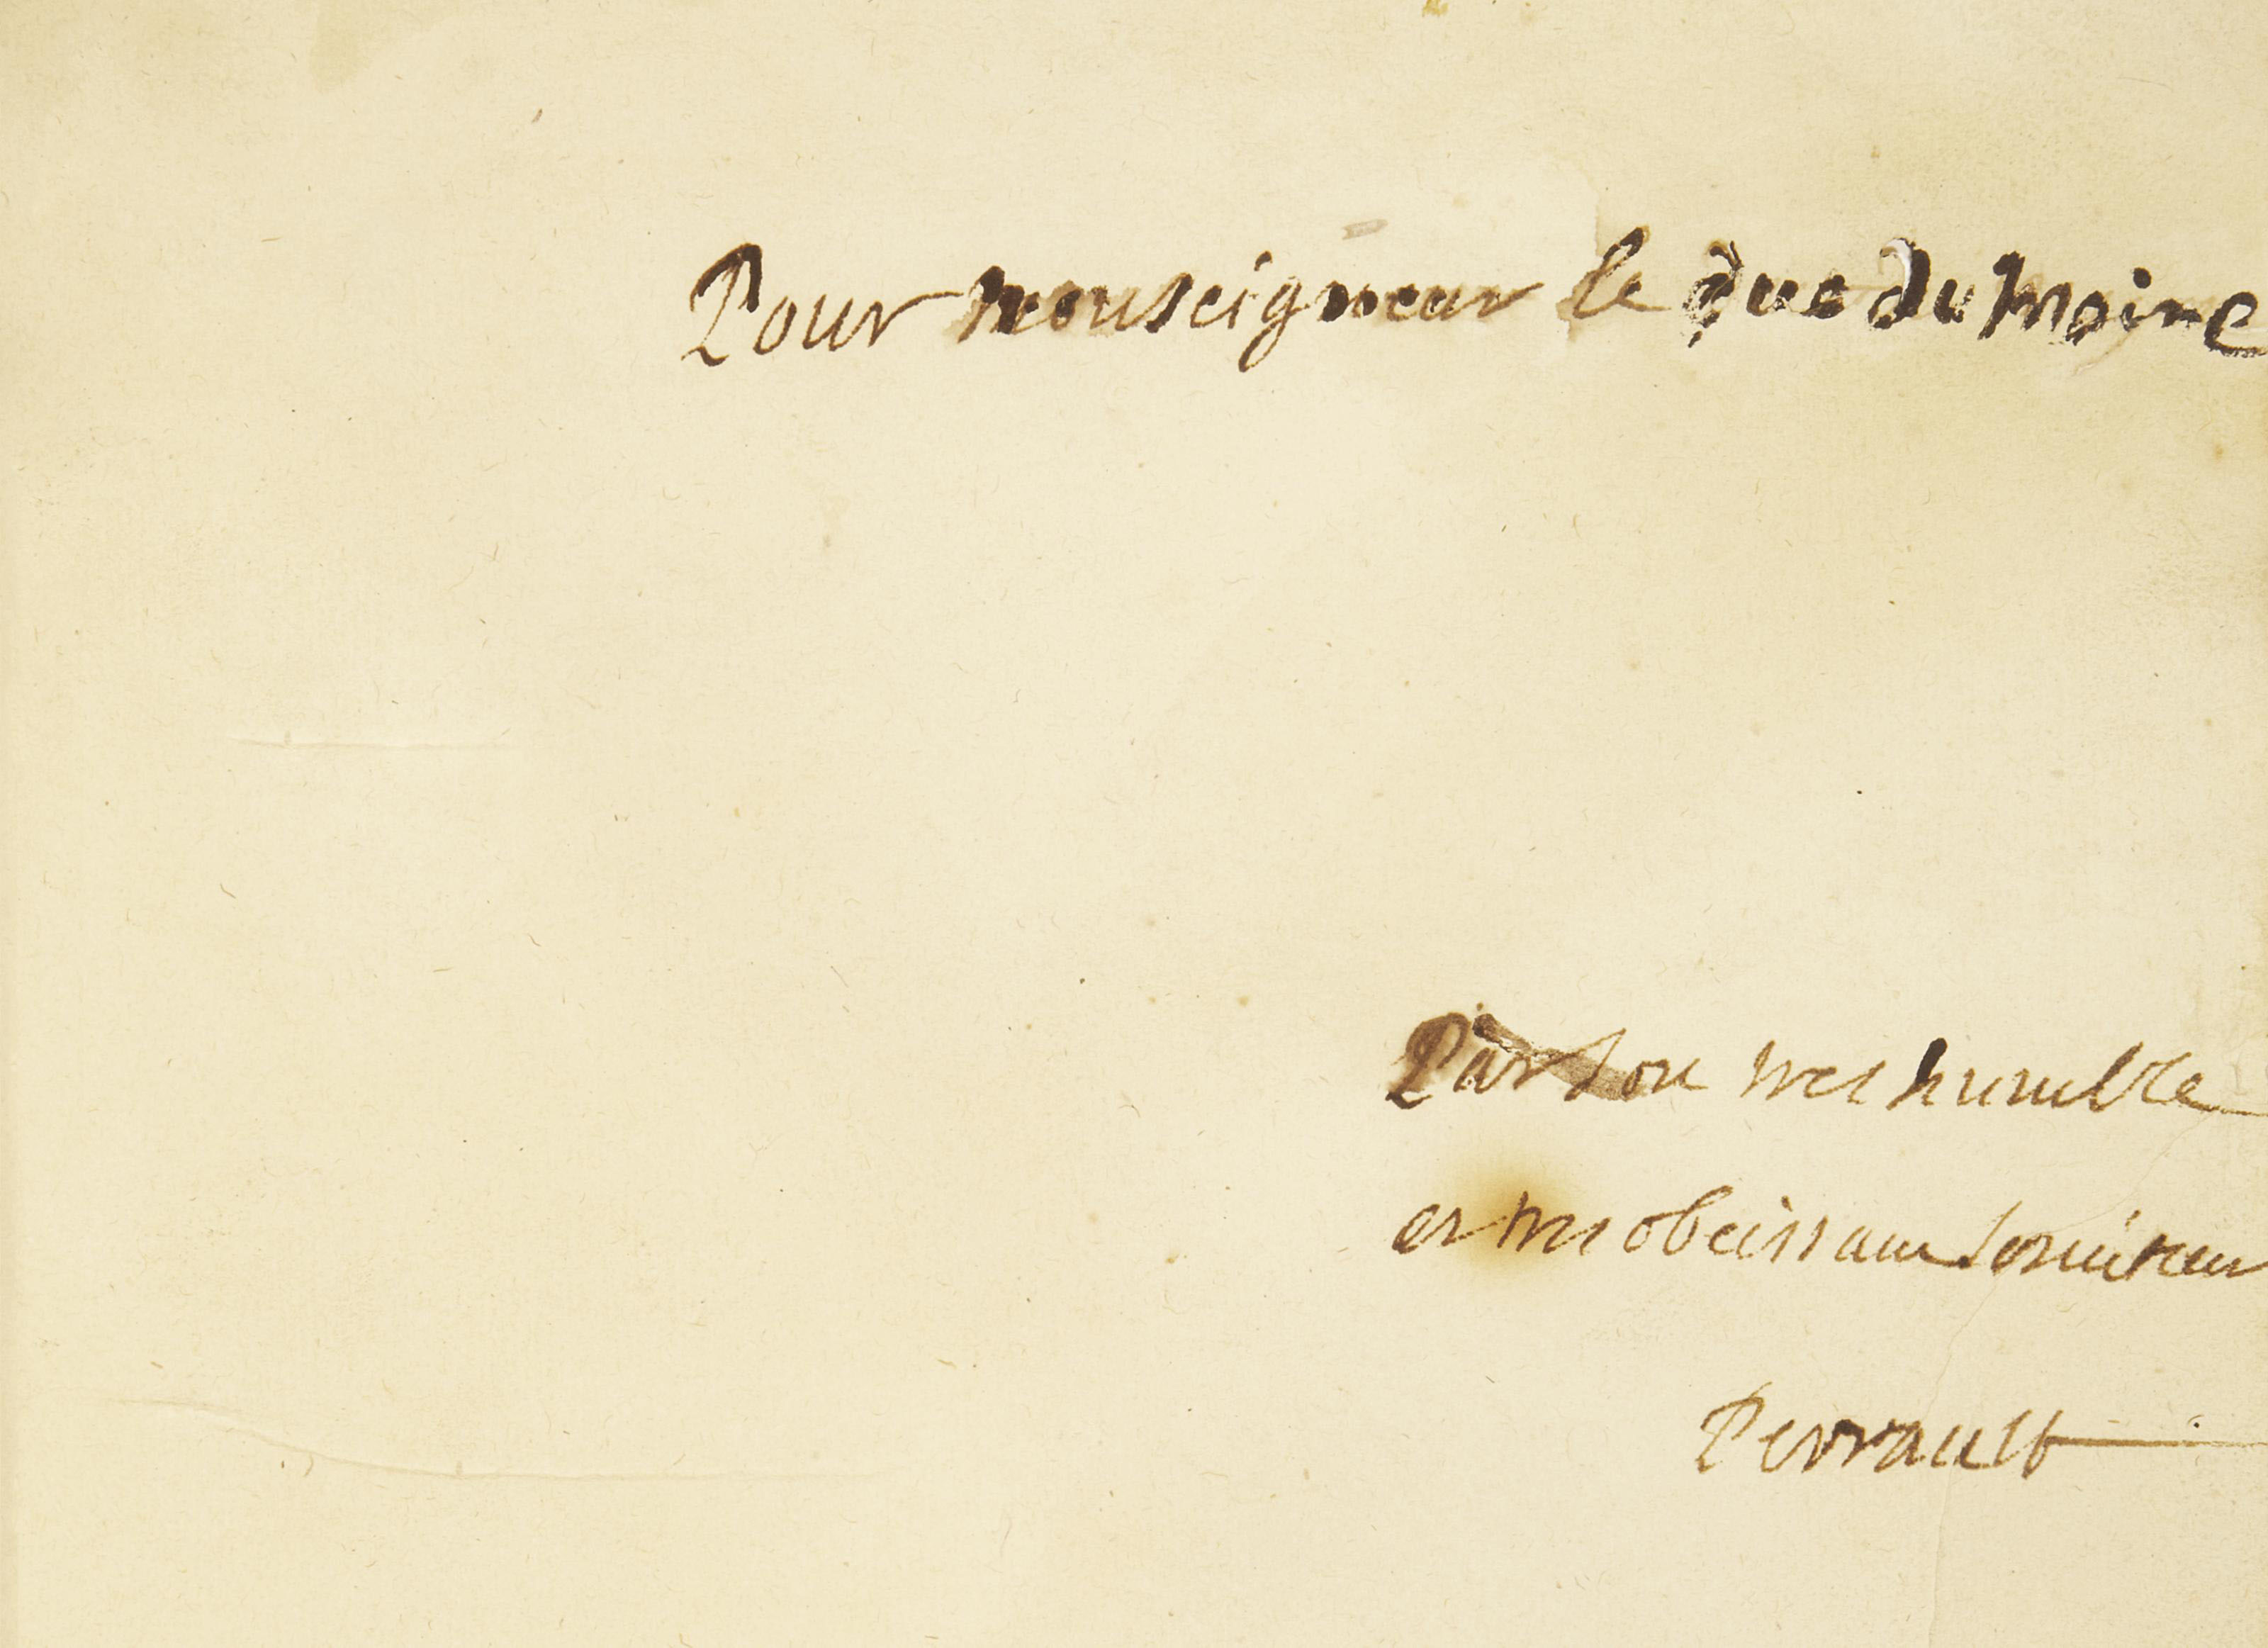 Pour monseigneur le duc du Maine
Par son tres humble
et tres obeissant serviteur
Perrault